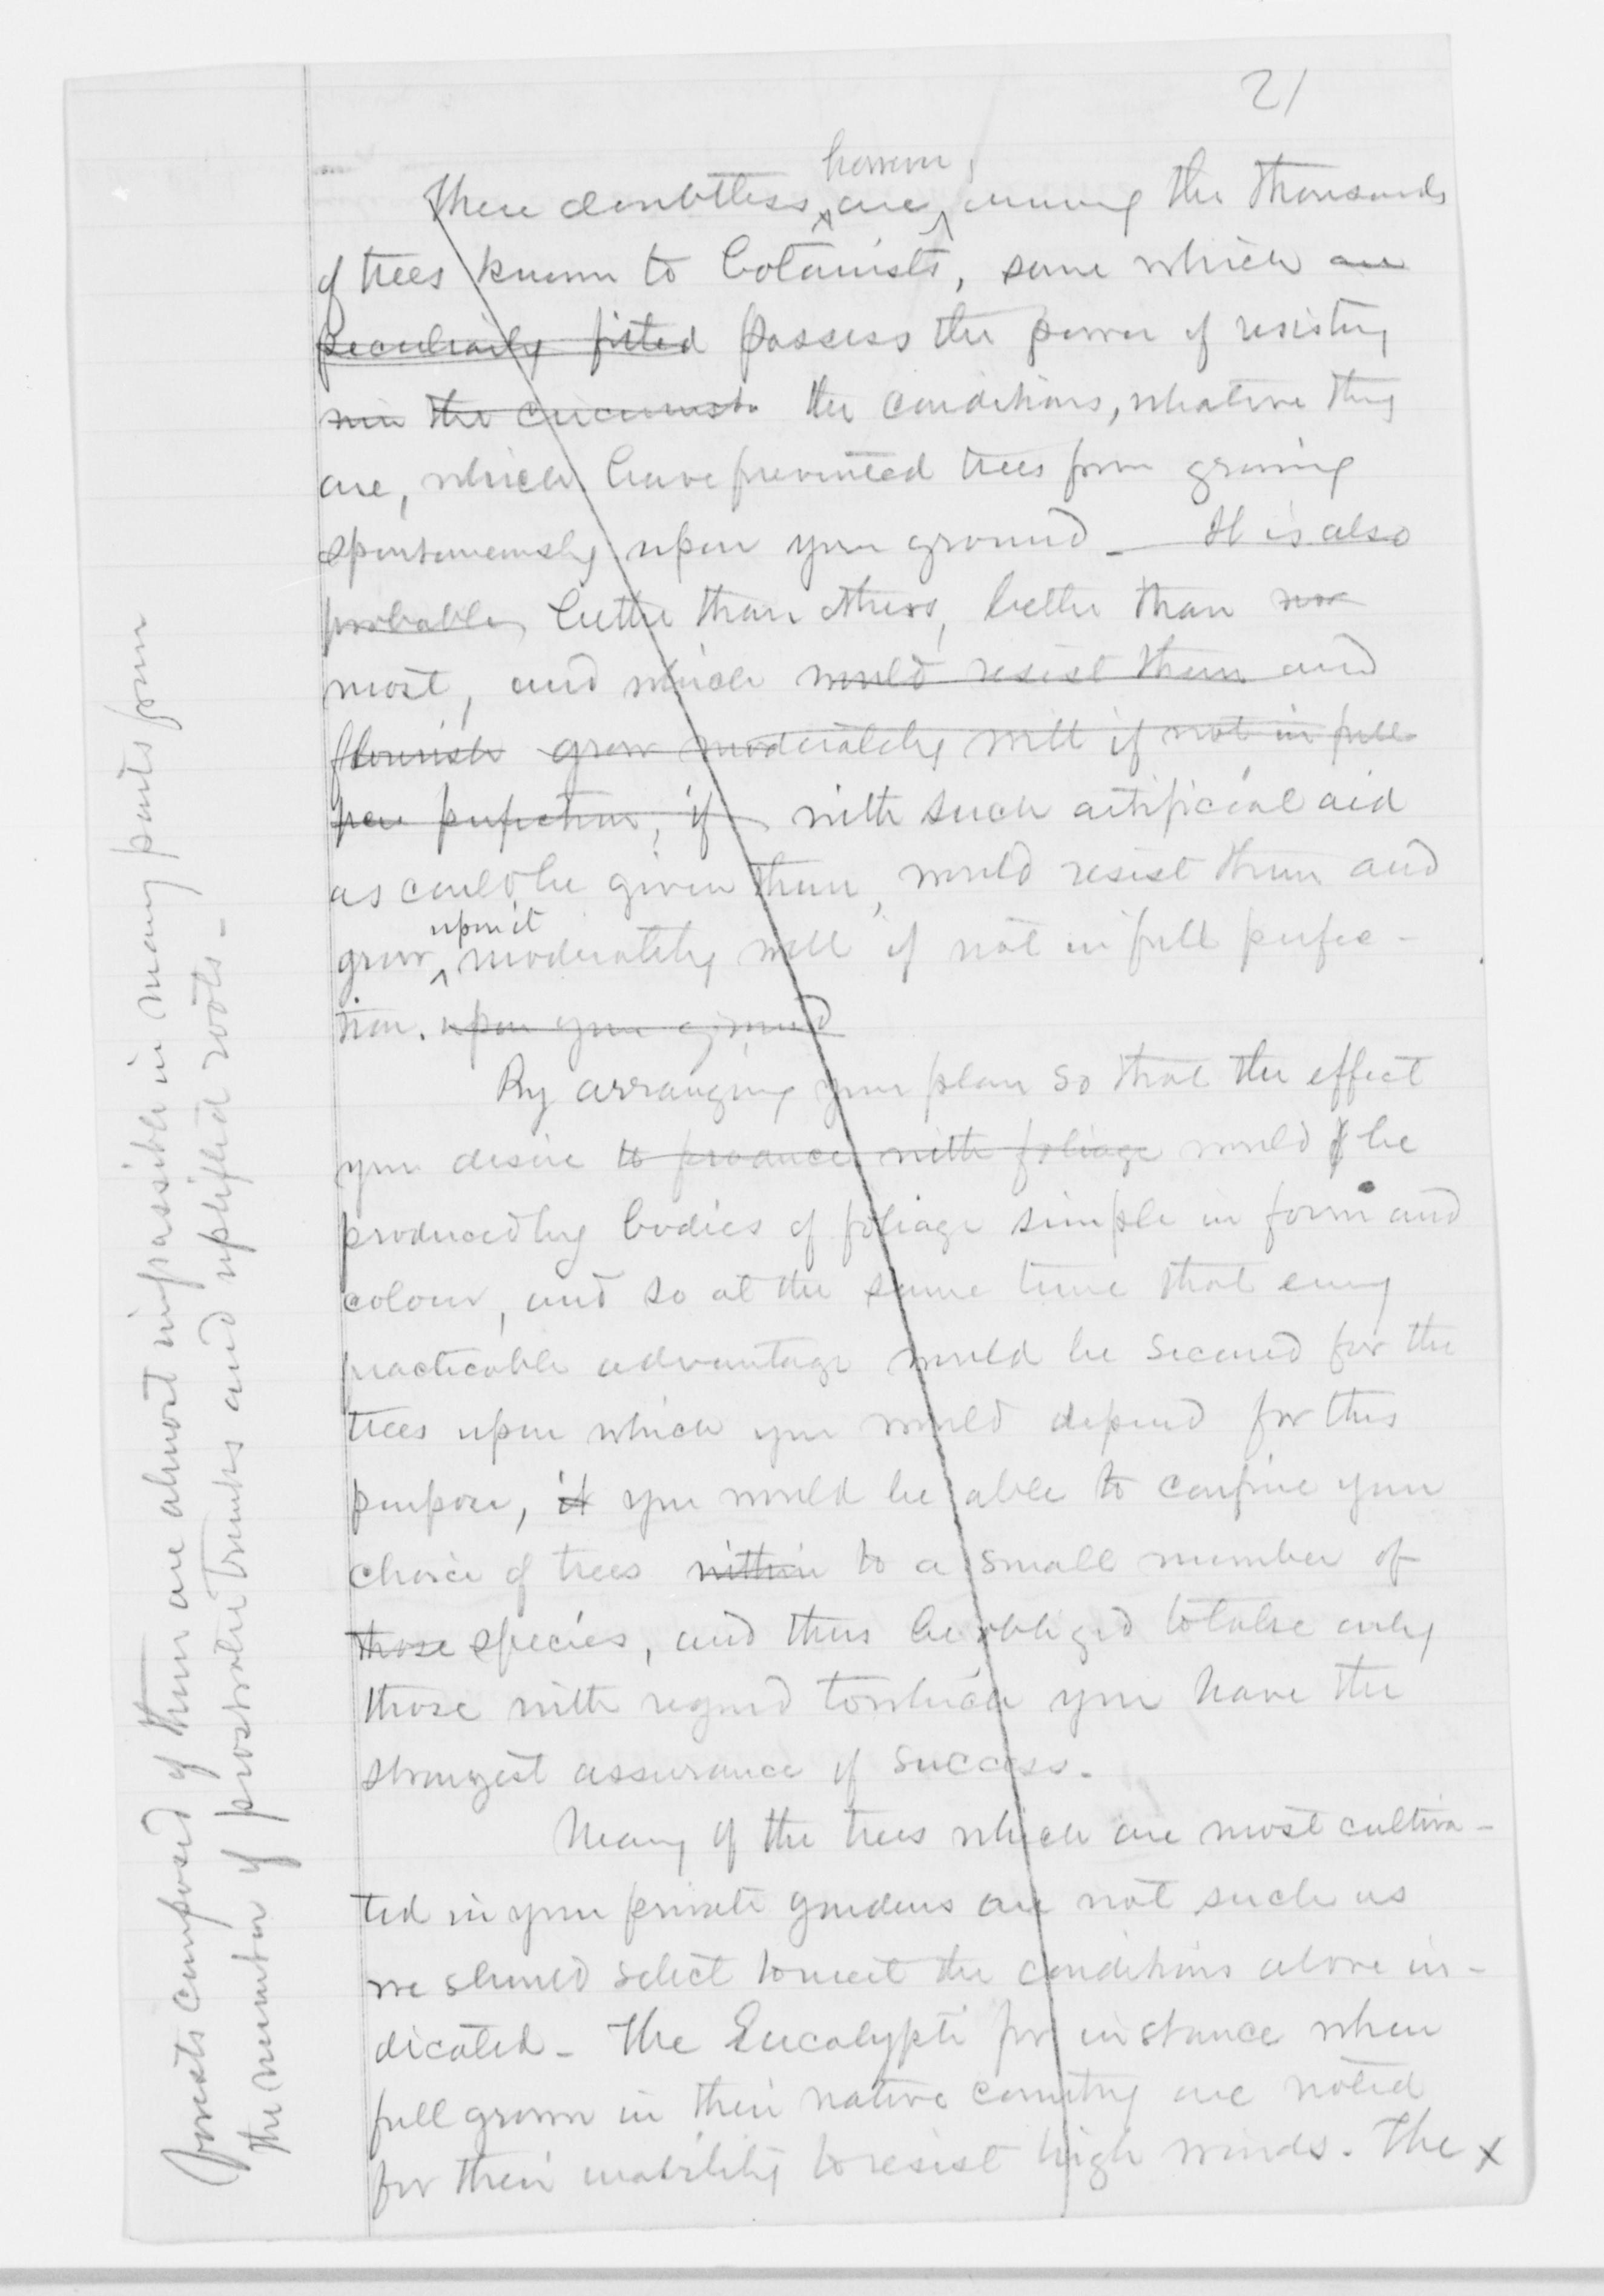 21
however,
There doubtless are among the thousands
of trees known to botanists, some which are
peculiarly fitted possess the power of resisting
the circumst. the conditions, whatever they
are, which have prevented trees from growing
spontaneously upon your ground _ It is also
probable, better than others, better than
most, and which would resist them and
flourish grow moderately well if not in full
perfection, if with such artificial aid
as could be given them, would resist them and
upon it
grow moderately well if not in full perfec-
tion. upon your ground
By arranging your plan so that the effect
you desire to produce with foliage would be
produced by bodies of foliage simple in form and
colour, and so at the same time that every
practicable advantage would be secured for the
trees upon which you would depend for this
purpose, it you would be able to confine your
choice of trees within to a small number of
those species, and thus be obliged to take only
those with regard to which you have the
strongest assurance of success.
Many of the trees which are most cultiva-
ted in your private gardens are not such as
we should select to meet the conditions above in-
dicated _ The Eucalypti for instance when
full grown in their native country are noted
for their inability to resist high winds. The x
forests composed of them are almost impassible in many parts from
the number of prostrate trunks and uplifted roots _